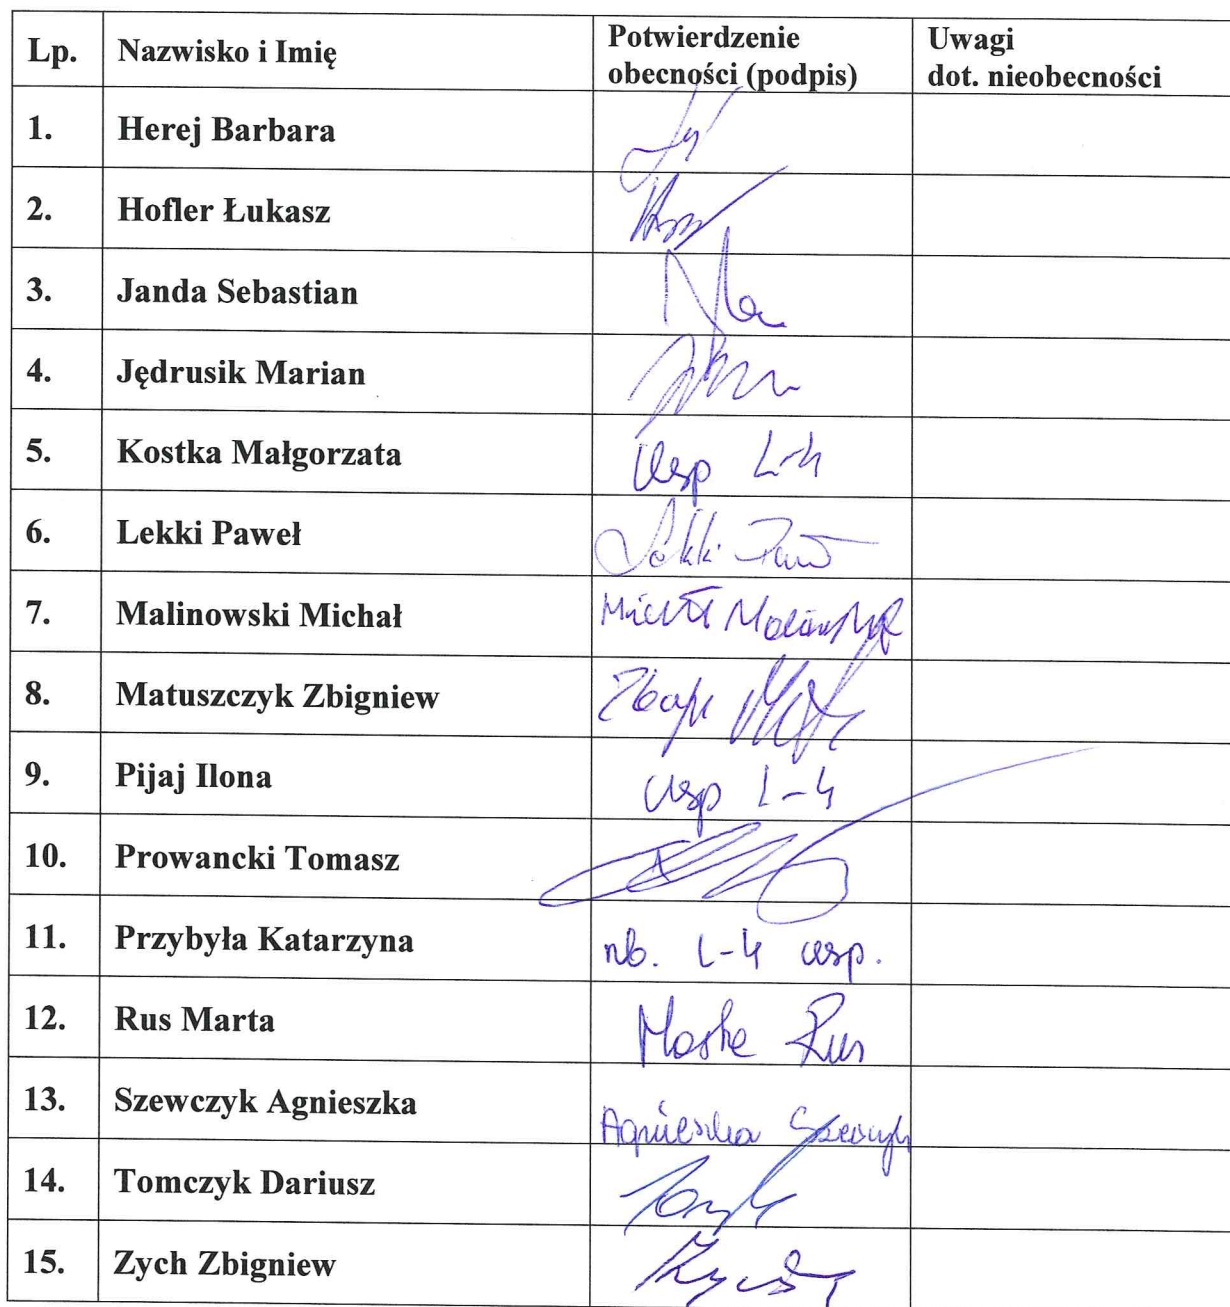 Lp. Nazwisko i Imię Potwierdzenie obecności (podpis) Uwagi dot. nieobecności
1. Herej Barbara
2. Hofler Łukasz
3. Janda Sebastian
4. Jędrusik Marian
5. Kostka Małgorzata usp L-4
6. Lekki Paweł Lekki Paweł
7. Malinowski Michał Michał Malinowski
8. Matuszczyk Zbigniew
9. Pijaj Ilona usp L-4
10. Prowancki Tomasz
11. Przybyła Katarzyna nb. L-4 usp.
12. Rus Marta Marta Rus
13. Szewczyk Agnieszka Agnieszka Szewczyk
14. Tomczyk Dariusz
15. Zych Zbigniew